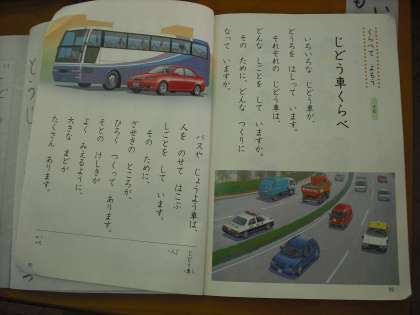 くらべて よもう
じどう車くらべ
いろいろな じどう車が、
どうろを はしって います。
それぞれの じどう車は、
どんな しごとを して いますか。
その ために、どんな つくりに
なって いますか。
バスや じょうよう車は、
人を のせて はこぶ
しごとを して います。
その ために、
ざせきの ところが、
ひろく つくって あります。
そとの けしきが
よく みえるように、
大きな まどが
たくさん あります。
じどう車